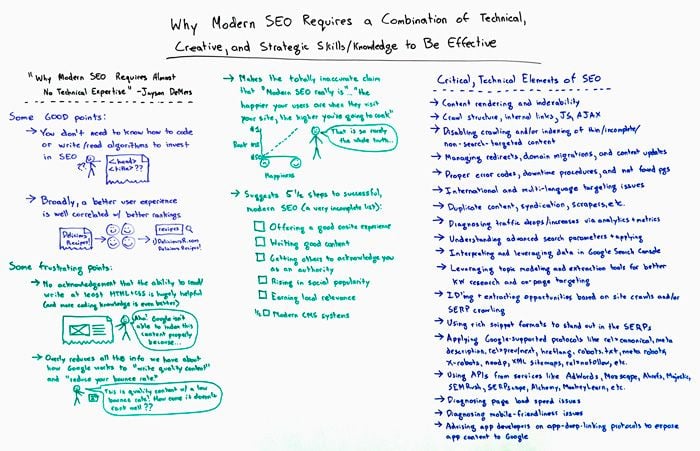 Why Modern SEO Requires a Combination of Technical,
Creative, and Strategic Skills/Knowledge to Be Effective
"Why Modern SEO Requires Almost
No Technical Expertise" -Jayson DeMers
Some GOOD points:
→ You don't need to know how to code
or write/read algorithms to invest
in SEO
<head>
<title>??
→ Broadly, a better user experience
is well correlated w/ better rankings
Delicious
Recipes!
recipes
1) DeliciousR.com
Delicious Recipes!
Some frustrating points:
→ No acknowledgement that the ability to read/
write at least HTML+CSS is hugely helpful
(and more coding knowledge is even better)
Aha! Google isn't
able to index this
content properly
because...
→ Overly reduces all the info we have about
how Google works to "write quality content"
and "reduce your bounce rate"
This is quality content w/ a low
bounce rate! How come it doesn't
rank well??
→ Makes the totally inaccurate claim
that "Modern SEO really is"... "the
happier your users are when they visit
your site, the higher you're going to rank"
#1
Rank
#50
Happiness
That is so rarely
the whole truth...
→ Suggests 5½ steps to successful,
modern SEO (a very incomplete list):
Offering a good onsite experience
Writing good content
Getting others to acknowledge you
as an authority
Rising in social popularity
Earning local relevance
½ Modern CMS systems
Critical, Technical Elements of SEO
→ Content rendering and indexability
→ Crawl structure, internal links, JS, AJAX
→ Disabling crawling and/or indexing of thin/incomplete/
non-search-targeted content
→ Managing redirects, domain migrations, and content updates
→ Proper error codes, downtime procedures, and not found pgs
→ International and multi-language targeting issues
→ Duplicate content, syndication, scrapers, etc.
→ Diagnosing traffic drops/increases via analytics+metrics
→ Understanding advanced search parameters + applying
→ Interpreting and leveraging data in Google Search Console
→ Leveraging topic modeling and extraction tools for better
KW research and on-page targeting
→ ID'ing + extracting opportunities based on site crawls and/or
SERP crawling
→ Using rich snippet formats to stand out in the SERPs
→ Applying Google-supported protocols like rel=canonical, meta
description, rel=prev/next, hreflang, robots.txt, meta robots,
x-robots, noodp, XML sitemaps, rel=nofollow, etc.
→ Using APIs from services like AdWords, Mozscape, Ahrefs, Majestic,
SEMRush, SERPscape, Alchemy, MonkeyLearn, etc.
→ Diagnosing page load speed issues
→ Diagnosing mobile-friendliness issues
→ Advising app developers on app-deep-linking protocols to expose
app content to Google